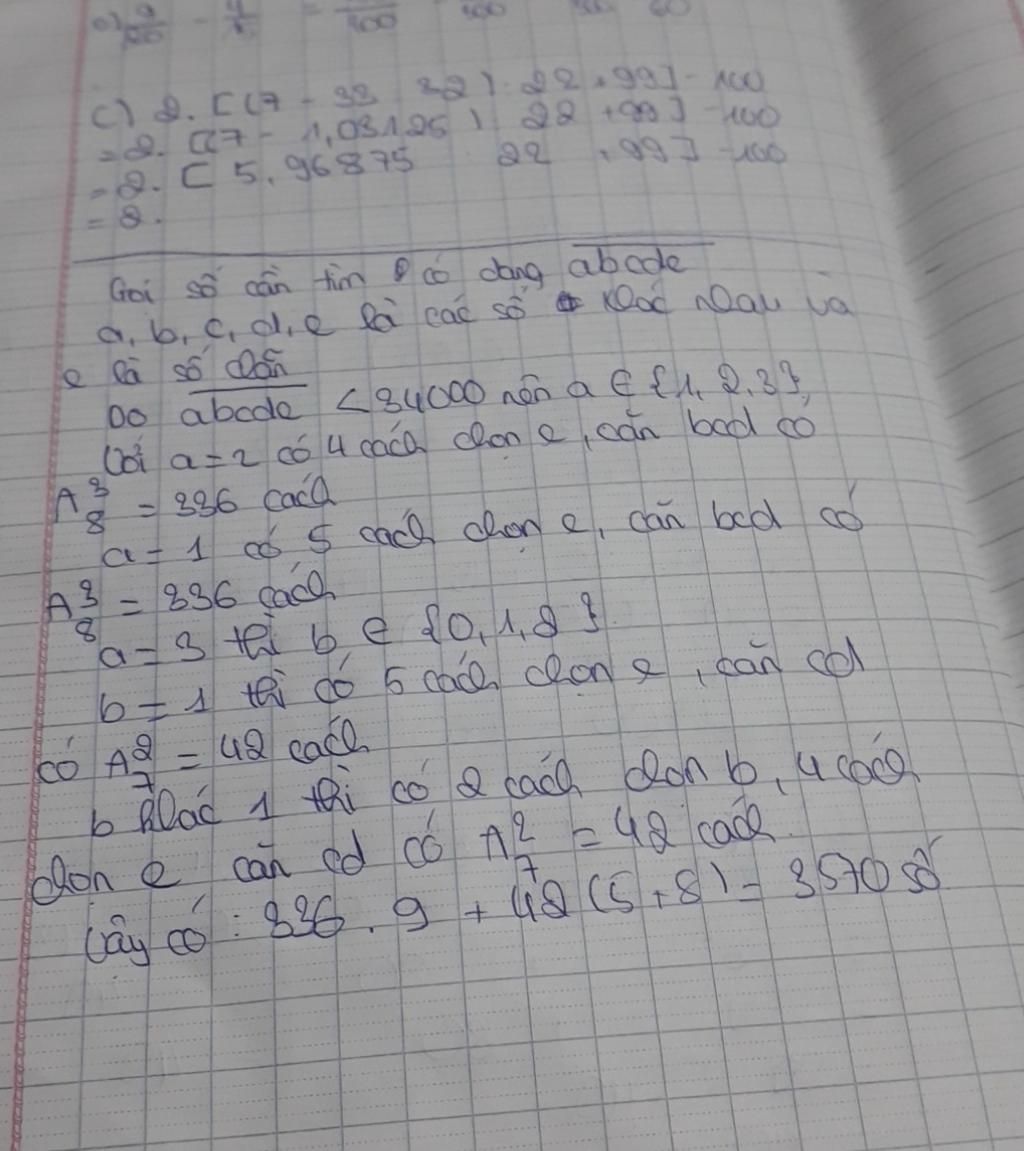 c) 2. [(7 - 33 32) : 22 + 99] - 100
= 2. [(7 - 1,03125) 22 + 99] - 100
= 2. [5,96875 22 + 99] - 100
= 2.
Gọi số cần tìm có dạng abcde
a, b, c, d, e là các số khác nhau và
e là số chẵn
Do abcde < 34000 nên a ∈ {1, 2, 3},
Với a = 2 có 4 cách chọn e, còn bcd có
A³₈ = 336 cách
a = 1 có 5 cách chọn e, còn bcd có
A³₈ = 336 cách
a = 3 thì b ∈ {0, 1, 2}
b = 1 thì có 5 cách chọn e, còn cd
có A²₇ = 42 cách
b khác 1 thì có 2 cách chọn b, 4 cách
chọn e còn cd có A²₇ = 42 cách
Vậy có : 336 . 9 + 42 (5 + 8) = 3570 số